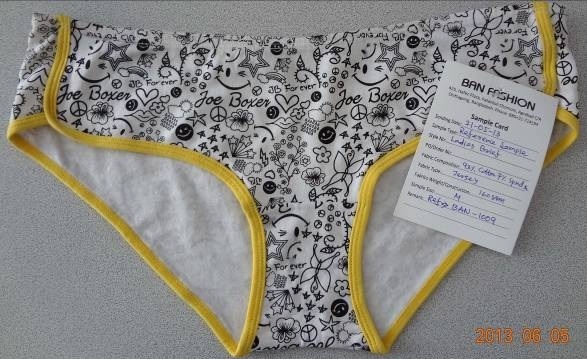 JB Forever
JB Forever
Joe Boxer
Joe Boxer
Joe Boxer
Forever
BAN FASHION
Sample Card
Sending Date: 31-05-13
Sample Type: Reference Sample
Style No: Ladies Brief
PO/Order No:
Fabric Composition: 93% Cotton 7% Spndx
Fabric Type: Jersey
Fabrics Weight/Construction: 160 GSM
Sample Size: M
Remark: Ref>> BAN-1009
2013 06 05